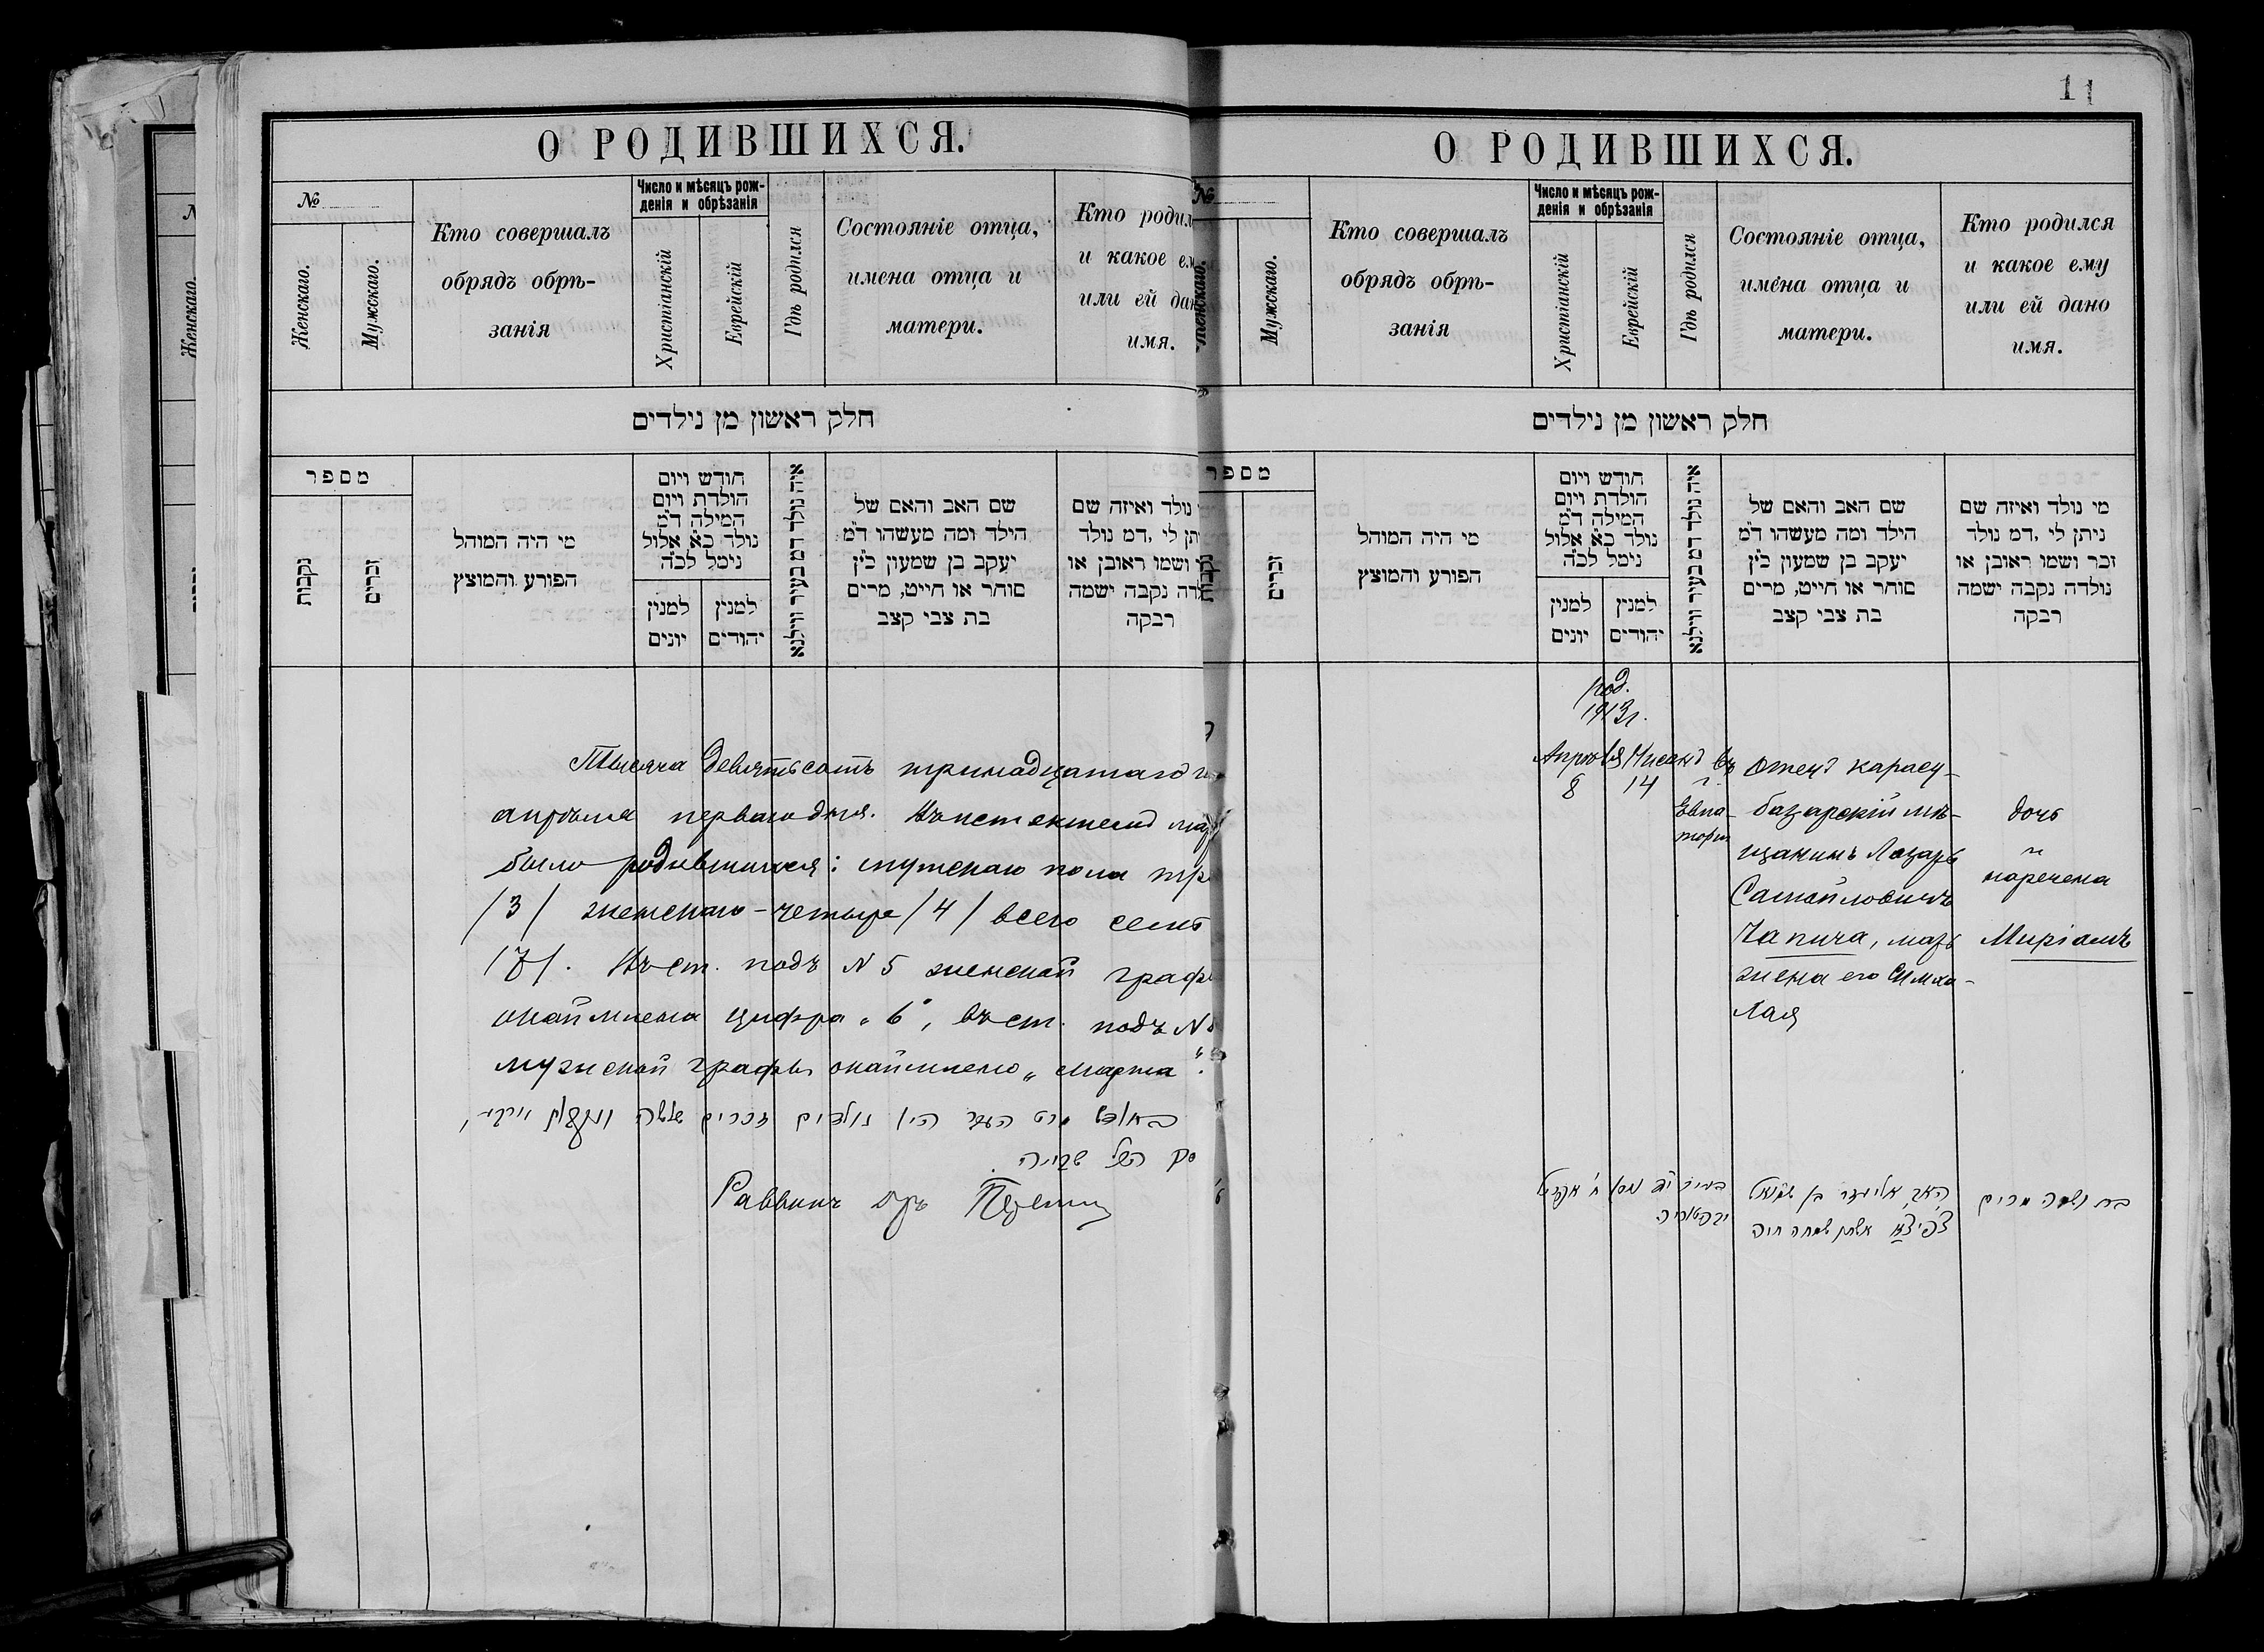 О РОДИВШИХСЯ.
№
Женскаго.
Мужскаго.
Кто совершалъ
обрядъ обрѣ-
занія
Число и мѣсяцъ рож-
денія и обрѣзанія
Христіанскій
Еврейскій
Гдѣ родился
Состояніе отца,
имена отца и
матери.
Кто родил
и какое ем
или ей дан
имя.
חלק ראשון מן נילדים
מספר
נקבות
זכרים
מי היה המוהל
הפורע והמוצץ
חודש ויום
הולדת ויום
המילה ד״מ
נולד כ״א אלול
נימל לכ״ה
למנין
יונים
למנין
יהודים
איה נולד דמ בעיר ווילנא
שם האב והאם של
הילד ומה מעשהו ד״מ
יעקב בן שמעון כ״ץ
סוחר או חייט, מרים
בת צבי קצב
נולד ואיזה שם
תן לי ,דמ נולד
ושמו ראובן או
דה נקבה ישמה
רבקה
Тысяча девятьсотъ тринадцатаго г
апрѣля перваго дня. Въ истекшемъ мар
было родившихся: мужскаго пола тр
/3/ женскаго - четыре /4/ всего семь
/7/. Въ ст. подъ № 5 женской граф
окаймлена цифра „6", въ ст. подъ №
мужской графы окаймлено „марта".
נולדים זכרים שלשה
Раввинъ
11
О РОДИВШИХСЯ.
№
Женскаго.
Мужскаго.
Кто совершалъ
обрядъ обрѣ-
занія
Число и мѣсяцъ рож-
денія и обрѣзанія
Христіанскій
Еврейскій
Гдѣ родился
Состояніе отца,
имена отца и
матери.
Кто родился
и какое ему
или ей дано
имя.
חלק ראשון מן נילדים
מספר
נקבות
זכרים
מי היה המוהל
הפורע והמוצץ
חודש ויום
הולדת ויום
המילה ד״מ
נולד כ״א אלול
נימל לכ״ה
למנין
יונים
למנין
יהודים
איה נולד דמ בעיר ווילנא
שם האב והאם של
הילד ומה מעשהו ד״מ
יעקב בן שמעון כ״ץ
סוחר או חייט, מרים
בת צבי קצב
מי נולד ואיזה שם
ניתן לי ,דמ נולד
זכר ושמו ראובן או
נולדה נקבה ישמה
רבקה
род.
1913г.
Апрѣля
8
Нисанъ
14
въ
г.
Евпа-
торіи
Отецъ карасу-
базарскій мѣ-
щанинъ Лазарь
Самойловичъ
Чапича, мать
жена его Симха-
Хая
дочь
и
наречена
Миріамъ
בעיר י״ד ניסן ח׳ אפריל
האב אליעזר בן שמואל
צ׳פיצ׳א אשתו שמחה חיה
בת ושמה מרים